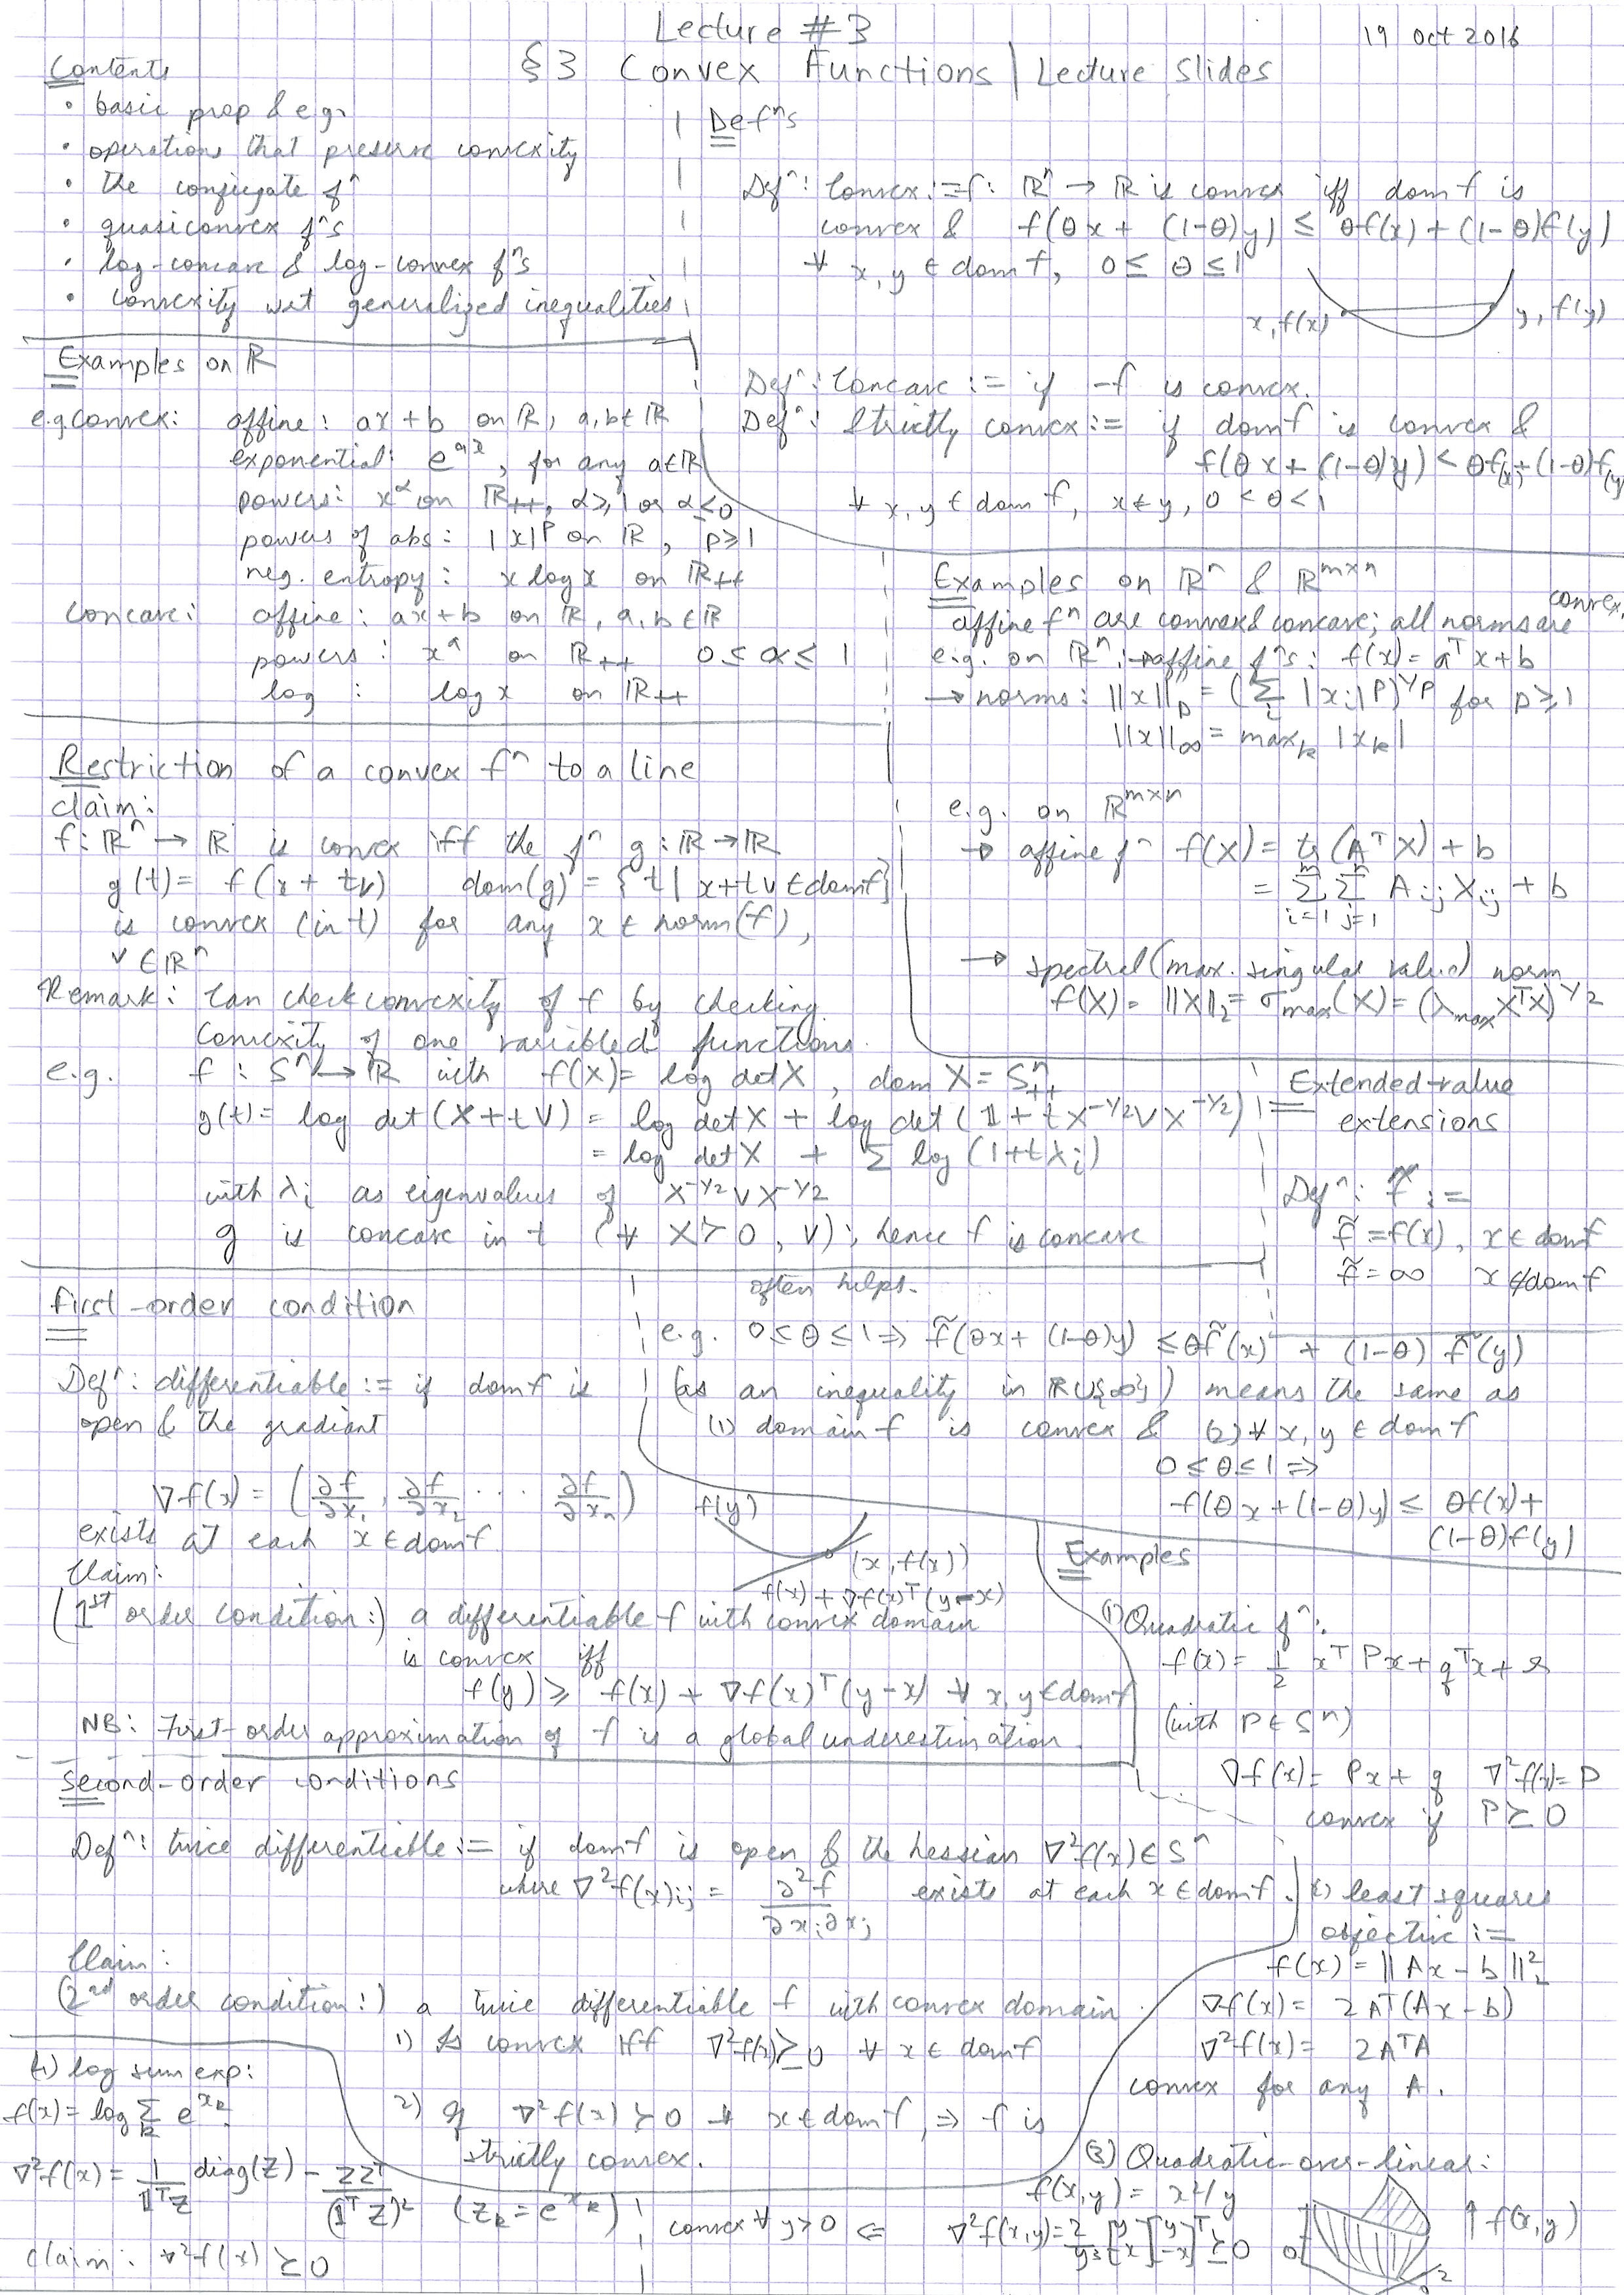 Lecture #3
19 Oct 2016
§3 Convex Functions | Lecture Slides
Contents
• basic prop & e.g.
• operations that preserve convexity
• the conjugate fⁿ
• quasiconvex fⁿs
• log-concave & log-convex fⁿs
• convexity wrt generalized inequalities
Defⁿs
Defⁿ: Convex := f: ℝⁿ → ℝ is convex iff dom f is
convex & f(θx + (1-θ)y) ≤ θf(x) + (1-θ)f(y)
∀ x, y ∈ dom f, 0 ≤ θ ≤ 1
x, f(x)
y, f(y)
Defⁿ: Concave := if -f is convex.
Defⁿ: Strictly convex := if dom f is convex &
f(θx + (1-θ)y) < θf(x) + (1-θ)f(y)
∀ x, y ∈ dom f, x ≠ y, 0 < θ < 1
Examples on ℝ
e.g. convex: affine: ax + b on ℝ, a, b ∈ ℝ
exponential: e^{ax}, for any a ∈ ℝ
powers: x^α on ℝ₊₊, α ≥ 1 or α ≤ 0
powers of abs: |x|^p on ℝ, p ≥ 1
neg. entropy: x log x on ℝ₊₊
concave: affine: ax + b on ℝ, a, b ∈ ℝ
powers: x^α on ℝ₊₊ 0 ≤ α ≤ 1
log: log x on ℝ₊₊
Examples on ℝⁿ & ℝ^{m×n}
affine fⁿ are convex & concave; all norms are convex,
e.g. on ℝⁿ: → affine fⁿs: f(x) = aᵀx + b
→ norms: ||x||_p = (Σ_i |x_i|^p)^{1/p} for p ≥ 1
||x||_∞ = max_k |x_k|
e.g. on ℝ^{m×n}
→ affine fⁿ f(X) = tr(AᵀX) + b
= Σ_{i=1}^m Σ_{j=1}^n A_{ij} X_{ij} + b
→ spectral (max. singular value) norm
f(X) = ||X||₂ = σ_max(X) = (λ_max XᵀX)^{1/2}
Restriction of a convex fⁿ to a line
claim:
f: ℝⁿ → ℝ is convex iff the fⁿ g: ℝ → ℝ
g(t) = f(x + tv) dom(g) = {t | x + tv ∈ dom f}
is convex (in t) for any x ∈ norm(f),
v ∈ ℝⁿ
Remark: Can check convexity of f by checking
convexity of one variabled functions.
e.g. f: Sⁿ → ℝ with f(X) = log det X, dom X = Sⁿ₊₊
g(t) = log det (X + tV) = log det X + log det (𝟙 + t X^{-1/2} V X^{-1/2})
= log det X + Σ log (1 + tλ_i)
with λ_i as eigenvalues of X^{-1/2} V X^{-1/2}
g is concave in t (∀ X ≻ 0, V); hence f is concave
Extended-value
extensions
Defⁿ: f̃ :=
f̃ = f(x), x ∈ dom f
f̃ = ∞ x ∉ dom f
often helps.
e.g. 0 ≤ θ ≤ 1 ⇒ f̃(θx + (1-θ)y) ≤ θf̃(x) + (1-θ) f̃(y)
(as an inequality in ℝ∪{∞}) means the same as
(1) domain f is convex & (2) ∀ x, y ∈ dom f
0 ≤ θ ≤ 1 ⇒
f(θx + (1-θ)y) ≤ θf(x) +
(1-θ)f(y)
First-order condition
Defⁿ: differentiable := if dom f is
open & the gradiant
∇f(x) = (∂f/∂x₁, ∂f/∂x₂ ... ∂f/∂xₙ)
exists at each x ∈ dom f
f(y)
(x, f(x))
f(x) + ∇f(x)ᵀ(y-x)
Claim:
(1st order condition:) a differentiable f with convex domain
is convex iff
f(y) ≥ f(x) + ∇f(x)ᵀ(y-x) ∀ x, y ∈ dom f
NB: First-order approximation of f is a global underestimation.
Examples
(1) Quadratic fⁿ:
f(x) = 1/2 xᵀPx + qᵀx + r
(with P ∈ Sⁿ)
∇f(x) = Px + q ∇²f(x) = P
convex if P ⪰ 0
Second-order conditions
Defⁿ: twice differentiable := if dom f is open & the hessian ∇²f(x) ∈ Sⁿ
where ∇²f(x)_{ij} = ∂²f/∂x_i∂x_j exists at each x ∈ dom f.
Claim:
(2nd order condition:) a twice differentiable f with convex domain
1) Is convex iff ∇²f(x) ⪰ 0 ∀ x ∈ dom f
2) If ∇²f(x) ≻ 0 ∀ x ∈ dom f, ⇒ f is
strictly convex.
(2) least squares
objective :=
f(x) = ||Ax - b||₂²
∇f(x) = 2Aᵀ(Ax - b)
∇²f(x) = 2AᵀA
convex for any A.
(3) Quadratic-over-linear:
f(x,y) = x²/y
convex ∀ y > 0 ⇐ ∇²f(x,y) = 2/y³ [y -x][y -x]ᵀ ⪰ 0
↑ f(x,y)
0
2
(4) log sum exp:
f(x) = log Σ_k e^{x_k}
∇²f(x) = 1/(𝟙ᵀz) diag(z) - zzᵀ/(𝟙ᵀz)² (z_k = e^{x_k})
claim: ∇²f(x) ⪰ 0